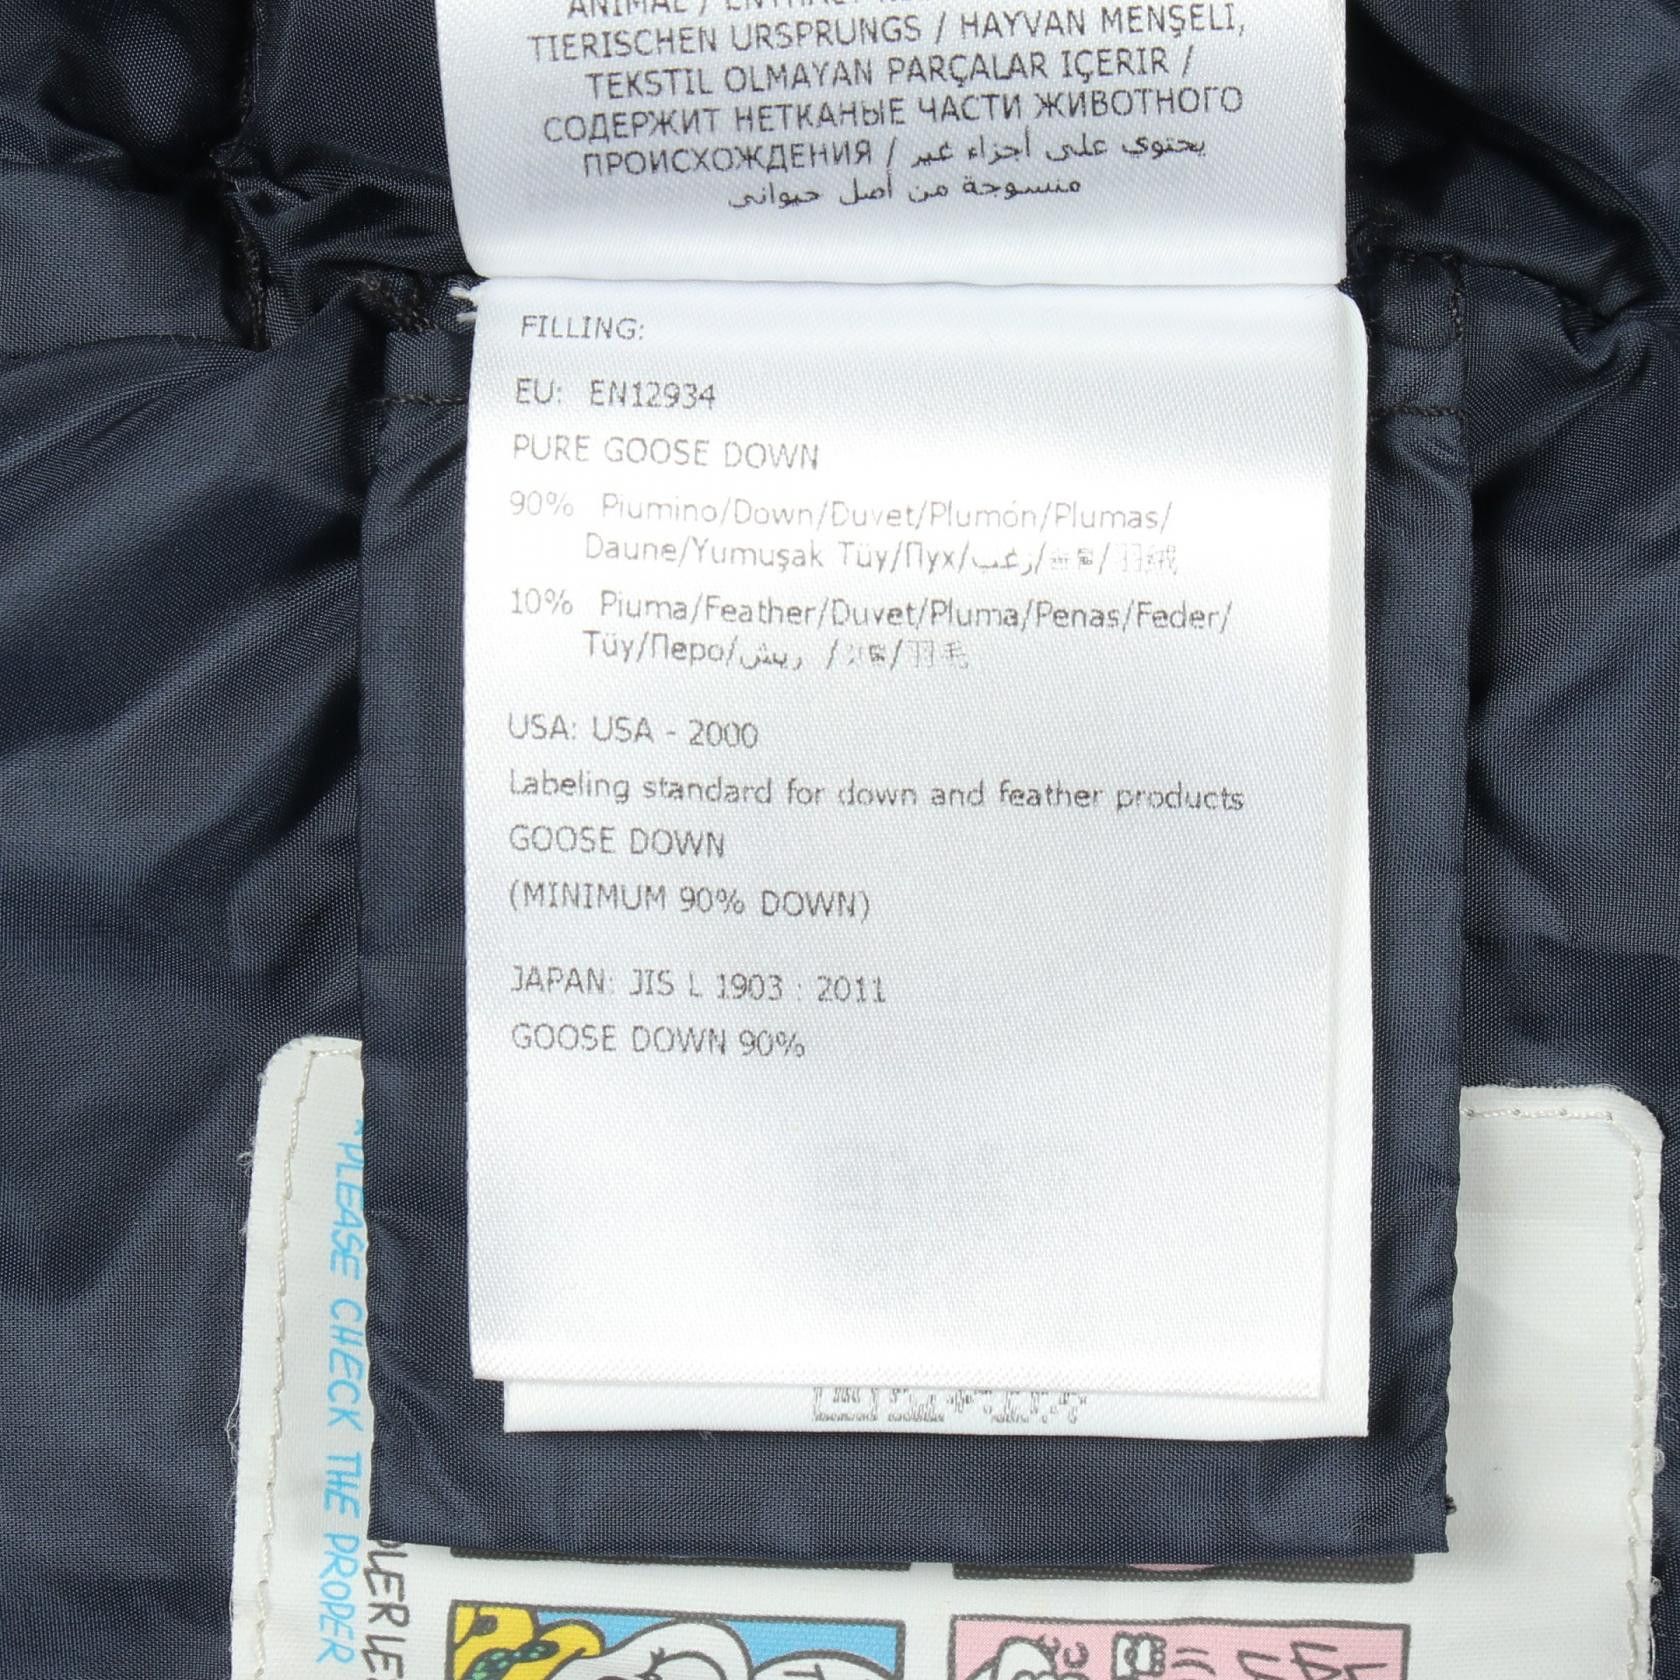 TIERISCHEN URSPRUNGS / HAYVAN MENŞELİ,
TEKSTIL OLMAYAN PARÇALAR IÇERIR /
СОДЕРЖИТ НЕТКАНЫЕ ЧАСТИ ЖИВОТНОГО
ПРОИСХОЖДЕНИЯ / يحتوي على أجزاء غير
منسوجة من أصل حيواني
FILLING:
EU: EN12934
PURE GOOSE DOWN
90% Piumino/Down/Duvet/Plumón/Plumas/
Daune/Yumuşak Tüy/Пух/زغب/ /羽绒
10% Piuma/Feather/Duvet/Pluma/Penas/Feder/
Tüy/Перо/ريش / /羽毛
USA: USA - 2000
Labeling standard for down and feather products
GOOSE DOWN
(MINIMUM 90% DOWN)
JAPAN: JIS L 1903 : 2011
GOOSE DOWN 90%
PLEASE CHECK THE PROPER